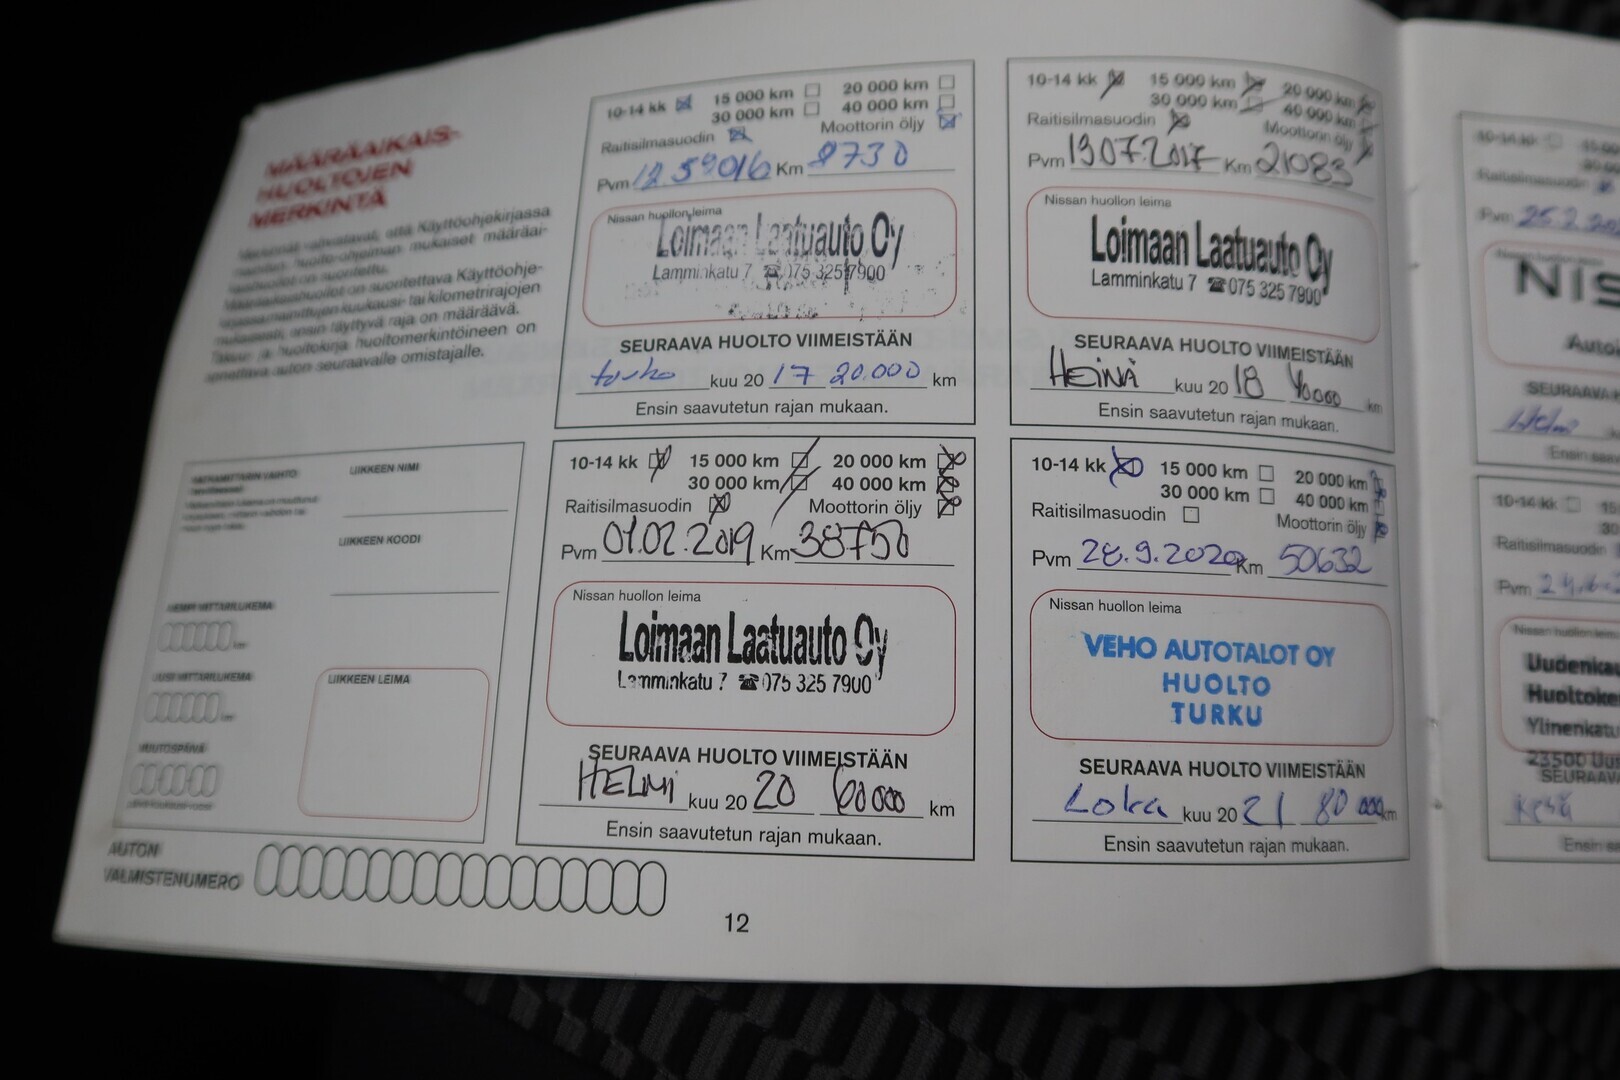 MÄÄRÄAIKAIS-
HUOLTOJEN
MERKINTÄ
Merkinnät vahvistavat, että Käyttöohjekirjassa
mukaiset määräai-
on suoritettu.
Määräaikaishuollot on suoritettava Käyttöohje-
kuukausi- tai kilometrirajojen
mukaisesti, ensin täyttyvä raja on määräävä.
Takuu- ja huoltokirja huoltomerkintöineen on
auton seuraavalle omistajalle.
LIIKKEEN NIMI
LIIKKEEN KOODI
LIIKKEEN LEIMA
AUTON
VALMISTENUMERO
10-14 kk 15 000 km 20 000 km
30 000 km 40 000 km
Raitisilmasuodin Moottorin öljy
Pvm Km 8730
Nissan huollon leima
Loimaan Laatuauto Oy
Lamminkatu 7 ☎075 325 7900
SEURAAVA HUOLTO VIIMEISTÄÄN
touko kuu 20 17 20.000 km
Ensin saavutetun rajan mukaan.
10-14 kk 15 000 km 20 000 km
30 000 km 40 000 km
Raitisilmasuodin Moottorin öljy
Pvm 19.07.2017 Km 21083
Nissan huollon leima
Loimaan Laatuauto Oy
Lamminkatu 7 ☎075 325 7900
SEURAAVA HUOLTO VIIMEISTÄÄN
HEINÄ kuu 20 18 40000 km
Ensin saavutetun rajan mukaan.
10-14 kk 15 000 km 20 000 km
30 000 km 40 000 km
Raitisilmasuodin Moottorin öljy
Pvm 01.02.2019 Km 38750
Nissan huollon leima
Loimaan Laatuauto Oy
Lamminkatu 7 ☎075 325 7900
SEURAAVA HUOLTO VIIMEISTÄÄN
HELMI kuu 20 20 60000 km
Ensin saavutetun rajan mukaan.
10-14 kk 15 000 km 20 000 km
30 000 km 40 000 km
Raitisilmasuodin Moottorin öljy
Pvm 28.9.2020 Km 50632
Nissan huollon leima
VEHO AUTOTALOT OY
HUOLTO
TURKU
SEURAAVA HUOLTO VIIMEISTÄÄN
Loka kuu 20 21 80 000 km
Ensin saavutetun rajan mukaan.
12
10-14 kk
Raitisilmasuodin
Pvm 25.2.
NIS
SEURAAVA
Helmi
Ensin
10-14 kk
Raitisilmasuodin
Pvm
Nissan huollon leima
Uudenka
Huoltoke
Ylinenkatu
23500 Uu
SEURAAVA
Kesä
Ensin